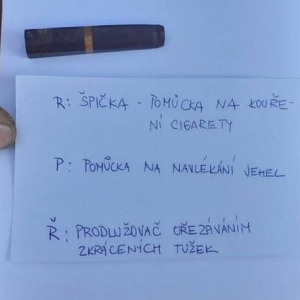 R: ŠPIČKA - POMŮCKA NA KOUŘE-
NÍ CIGARETY
P: POMŮCKA NA NAVLÉKÁNÍ JEHEL
Ř: PRODLUŽOVAČ OŘEZÁVÁNÍM
ZKRÁCENÝCH TUŽEK